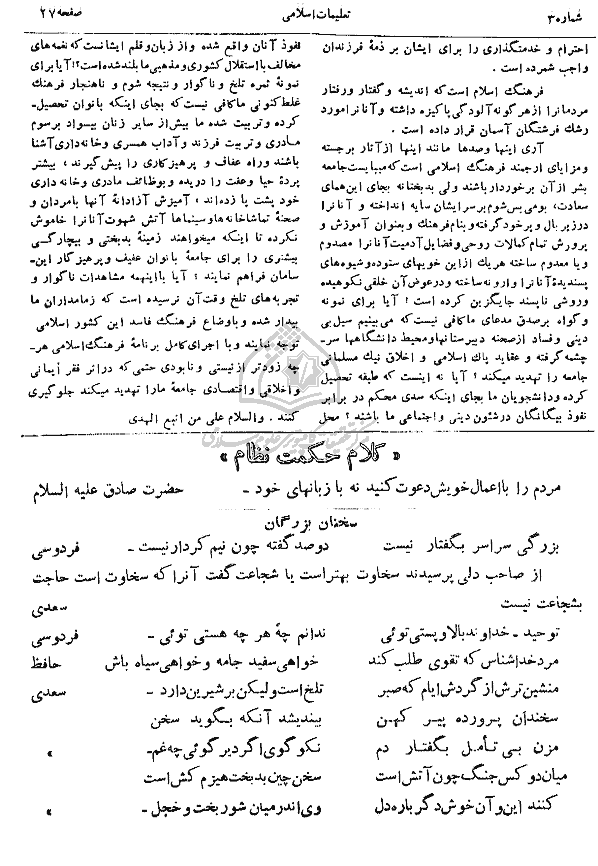 شماره ۳
تعلیمات اسلامی
صفحه ۲۷
احترام و خدمتگذاری را برای ایشان بر ذمهٔ فرزندان
واجب شمرده است .
فرهنگ اسلام است که اندیشه و گفتار و رفتار
مردمانرا از هرگونه آلودگی پاکیزه داشته و آنانرا مورد
رشك فرشتگان آسمان قرار داده است .
آری اینها وصدها مانند اینها از آثار برجسته
ومزایای ارجمند فرهنگ اسلامی است که میبایست جامعه
بشر از آن برخوردار باشند ولی بدبختانه بجای این همای
سعادت، بومی بس شوم بر سر ایشان سایه انداخته و آنانرا
در زیر بال و پر خود گرفته و بنام فرهنك و بعنوان آموزش و
پرورش تمام کمالات روحی و فضایل آدمیت آنانرا مصدوم
ویا معدوم ساخته هریك از این خویهای ستوده و شیوه‌های
پسندیدهٔ آنانرا وارونه ساخته و در عوض آن خلقی نکوهیده
وروشی ناپسند جایگزین کرده است ؛ آیا برای نمونه
وگواه بر صدق مدعای ما کافی نیست که می‌بینیم سیل بی
دینی و فساد از صحنه دبیرستانها و محیط دانشگاهها سر-
چشمه گرفته و عقاید پاك اسلامی و اخلاق نیك مسلمانی
جامعه را تهدید میکند ؟ آیا نه اینست که طبقه تحصیل
کرده و دانشجویان ما بجای اینکه سدی محکم در برابر
نفوذ بیگانگان در شئون دینی و اجتماعی ما باشند ؛ محل
نفوذ آنان واقع شده و از زبان و قلم ایشانست که نغمه‌های
مخالف با استقلال کشوری و مذهبی ما بلند شده است ؟! آیا برای
نمونهٔ ثمره تلخ و ناگوار و نتیجه شوم و ناهنجار فرهنك
غلط کنونی ما کافی نیست که بجای اینکه بانوان تحصیل-
کرده و تربیت شده ما بیش از سایر زنان بیسواد برسوم
مادری و تربیت فرزند و آداب همسری و خانه‌داری آشنا
باشند و راه عفاف و پرهیزکاری را پیش گیرند ، بیشتر
پردهٔ حیا و عفت را دریده و بوظائف مادری و خانه‌داری
خود پشت پا زده‌اند ، آمیزش آزادانهٔ آنها بامردان و
صحنهٔ تماشاخانه‌ها و سینماها آتش شهوت آنانرا خاموش
نکرده تا اینکه میخواهند زمینهٔ بدبختی و بیچارگی
بیشتری را برای جامعهٔ بانوان عفیف و پرهیزکار این-
سامان فراهم نمایند ؛ آیا با اینهمه مشاهدات ناگوار و
تجربه‌های تلخ وقت آن نرسیده است که زمامداران ما
بیدار شده و باوضاع فرهنگ فاسد این کشور اسلامی
توجه نمایند و با اجرای کامل برنامهٔ فرهنگ اسلامی هر-
چه زودتر از نیستی و نابودی حتمی که در اثر فقر ایمانی
و اخلاقی و اقتصادی جامعهٔ ما را تهدید میکند جلوگیری
کنند . والسلام علی من اتبع الهدی
« کلام حکمت نظام »
مردم را با اعمال خویش دعوت کنید نه با زبانهای خود - حضرت صادق علیه السلام
سخنان بزرگان
بزرگی سراسر بگفتار نیست دوصد گفته چون نیم کردار نیست - فردوسی
از صاحب دلی پرسیدند سخاوت بهتر است یا شجاعت گفت آنرا که سخاوت است حاجت
بشجاعت نیست سعدی
توحید - خداوند بالا و پستی توئی ندانم چهٔ هر چه هستی توئی - فردوسی
مرد خداشناس که تقوی طلب کند خواهی سفید جامه و خواهی سیاه باش حافظ
منشین ترش از گردش ایام که صبر تلخ است ولیکن بر شیرین دارد - سعدی
سخندان پرورده پیر کهن بیندیشد آنکه بگوید سخن
مزن بی تأمل بگفتار دم نکو گوی اگر دیر گوئی چه غم - »
میان دو کس جنگ چون آتش است سخن چین بدبخت هیزم کش است
کنند این و آن خوش دگر باره دل وی اندر میان شور بخت و خجل - »